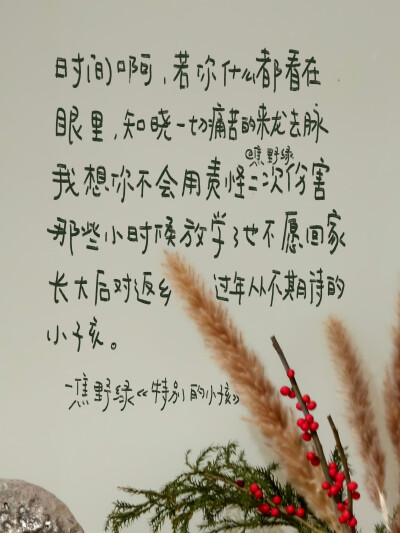 时间啊，若你什么都看在
眼里，知晓一切痛苦的来龙去脉
@焦野绿
我想你不会用责怪二次伤害
那些小时候放学了也不愿回家
长大后对返乡 过年从不期待的
小孩。
-焦野绿《特别的小孩》